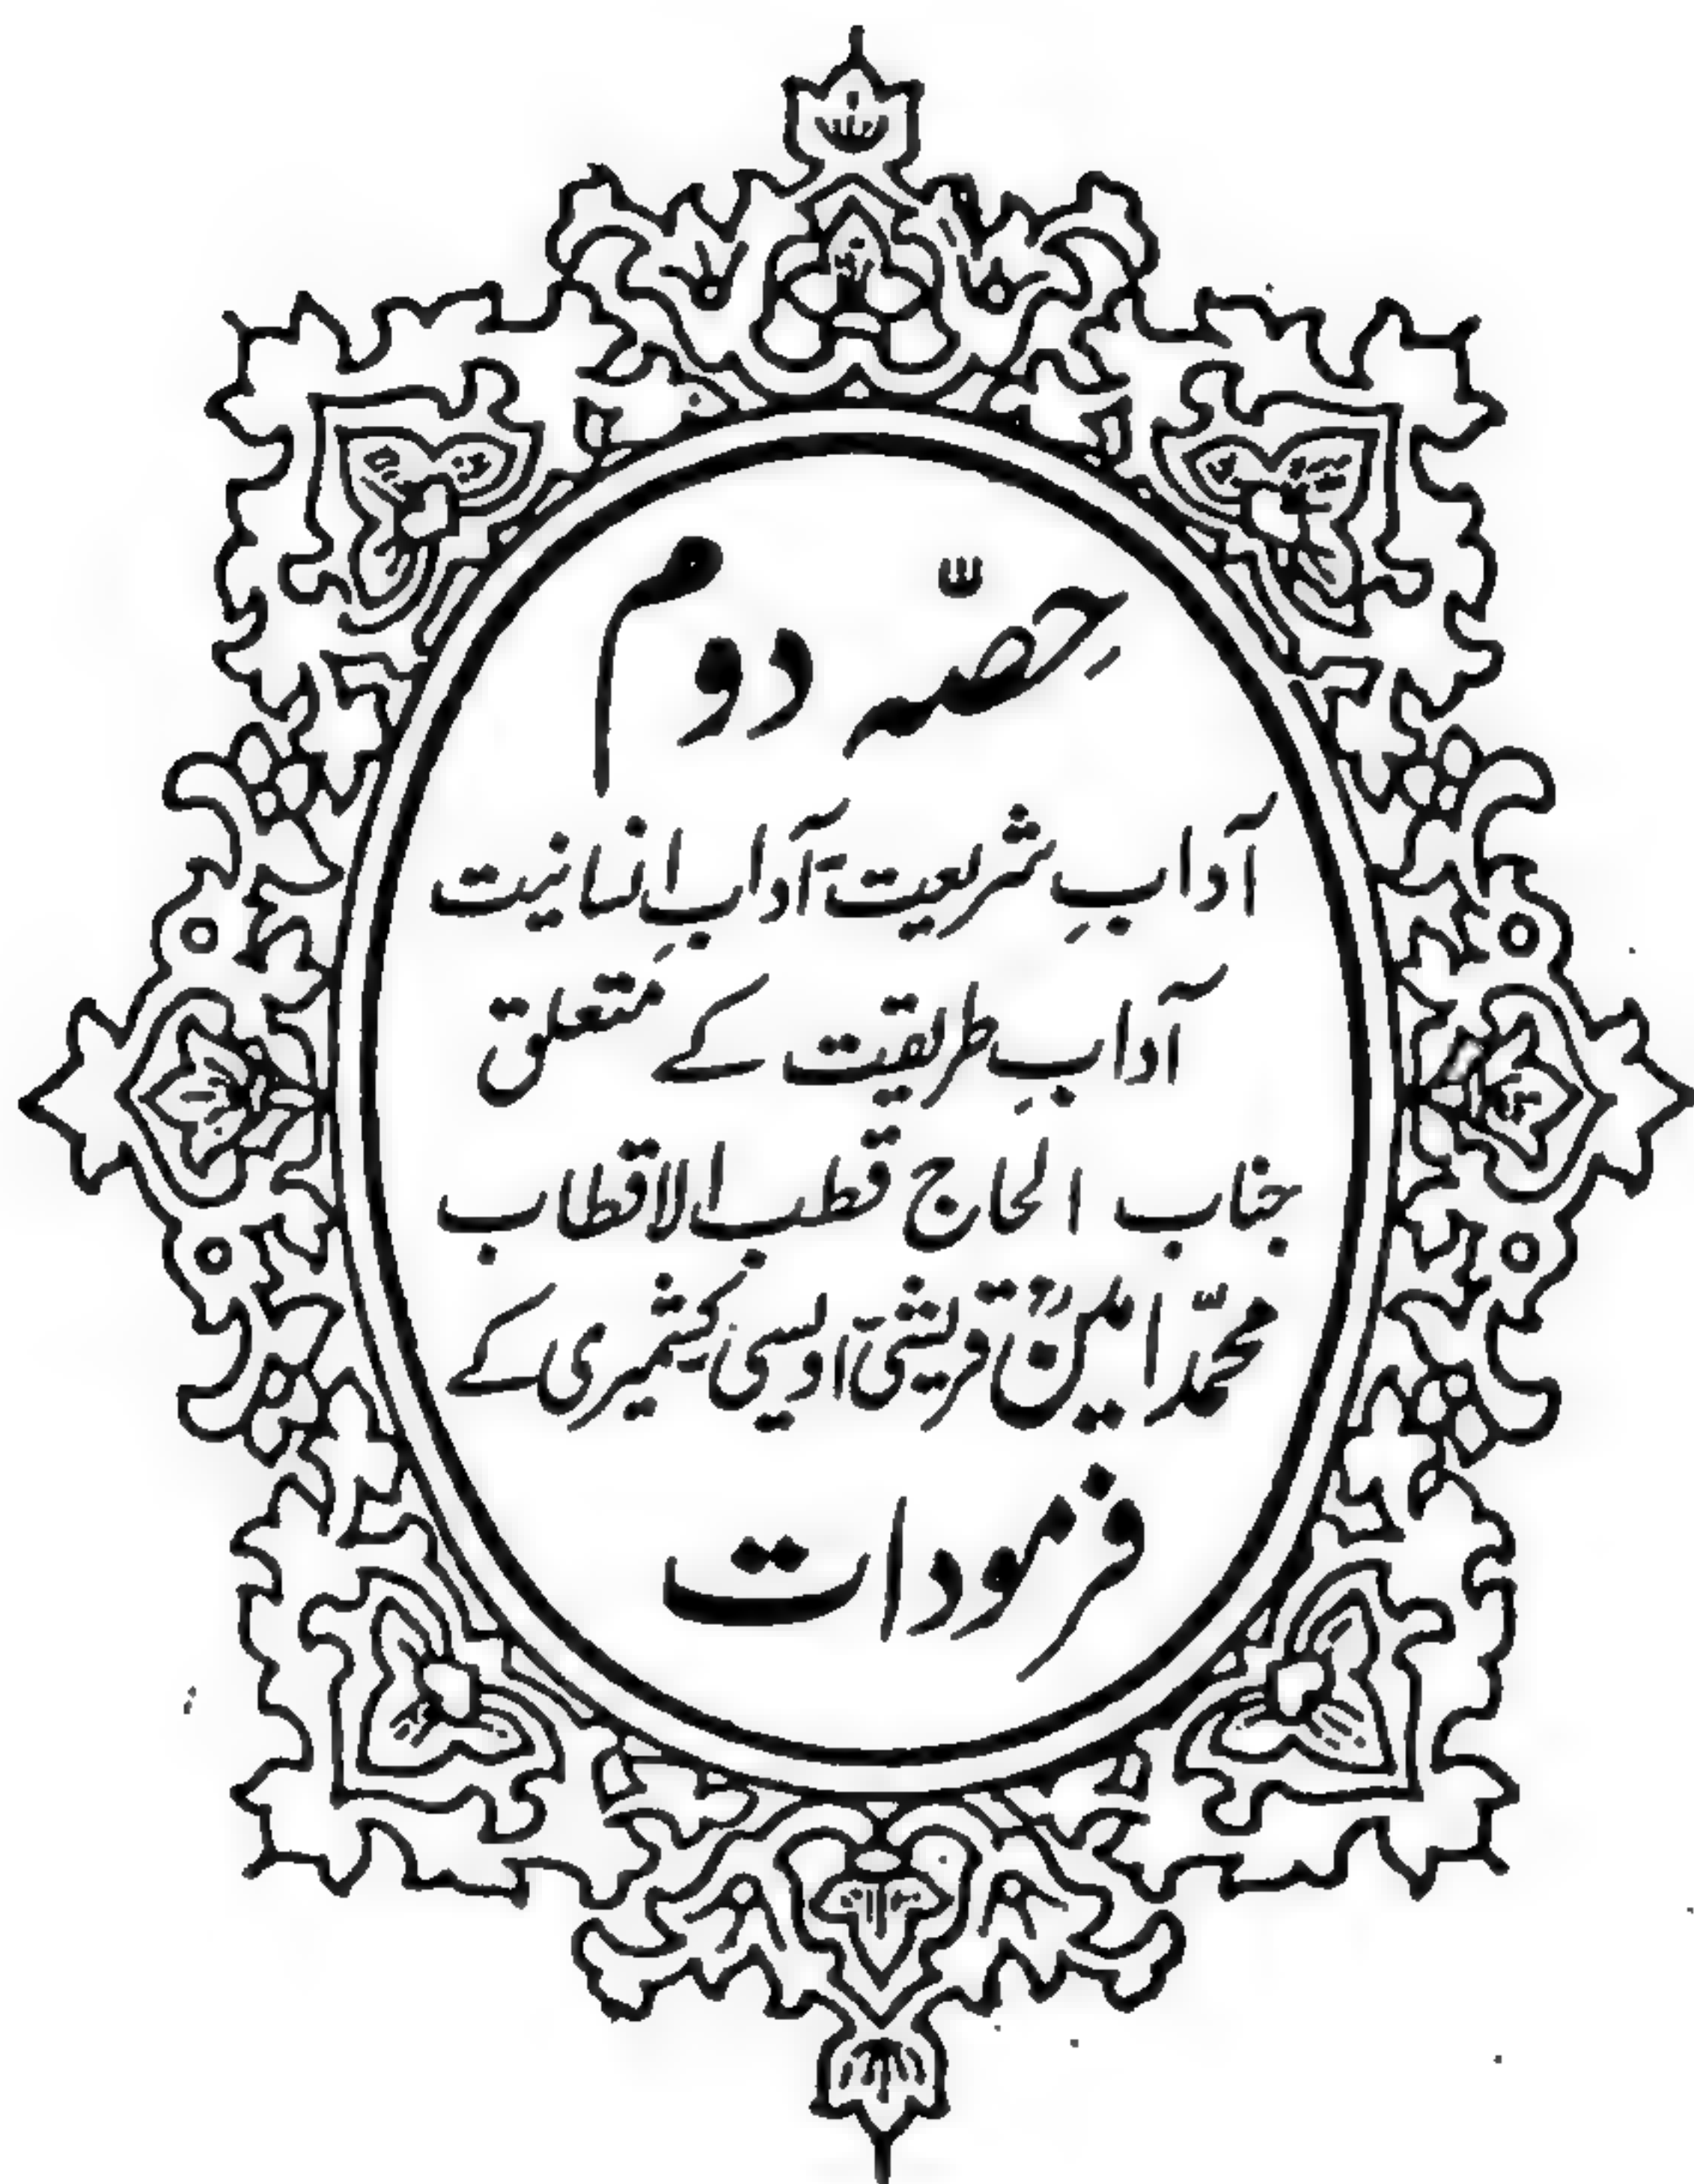 حِصّہ دوم
آدابِ شریعت، آدابِ اِنسانیت
آدابِ طریقت کے متعلق
جناب الحاج قطب الاقطاب
محمّد امینؒ قریشی، اویسی، کشمیری کے
فرمودات